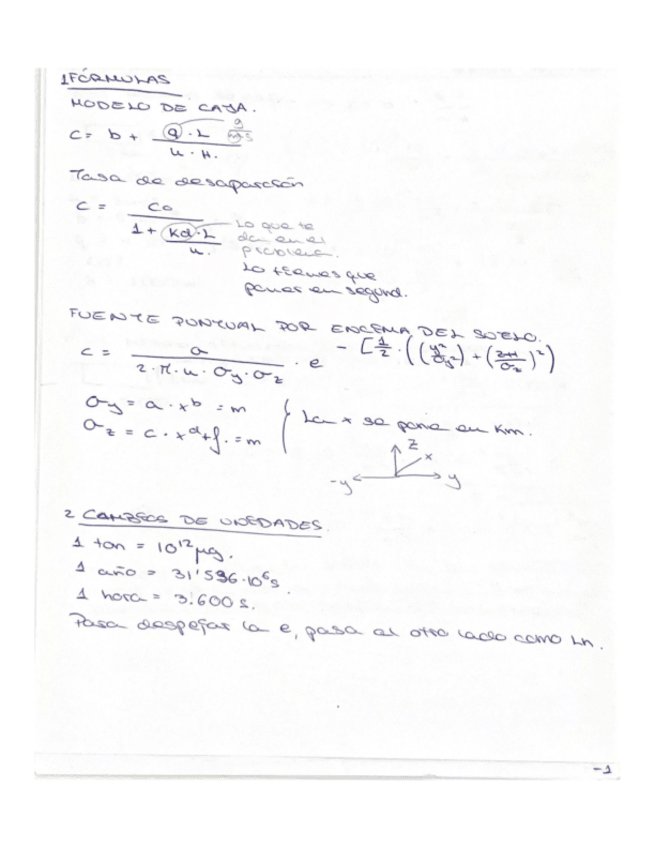 1 FÓRMULAS
MODELO DE CAJA.
C = b + (q · L) / (u · H.) g
Tasa de desaparición
C = C₀ / (1 + (Kd · L) / u.)
Lo que te
dan en el
problema.
Lo tienes que
poner en segund.
FUENTE PUNTUAL POR ENCIMA DEL SUELO.
C = Q / (2 · π · u · σy · σz) · e - [1/2 · ((y²/σy²) + (z-H/σz)²)]
σy = a · x^b = m
σz = c · x^d + f. = m
La x se pone en Km.
z
x
-y y
2 CAMBIOS DE UNIDADES.
1 ton = 10¹² μg.
1 año = 31'536·10⁶ s.
1 hora = 3.600 s.
Para despejar la e, pasa al otro lado como Ln.
-1